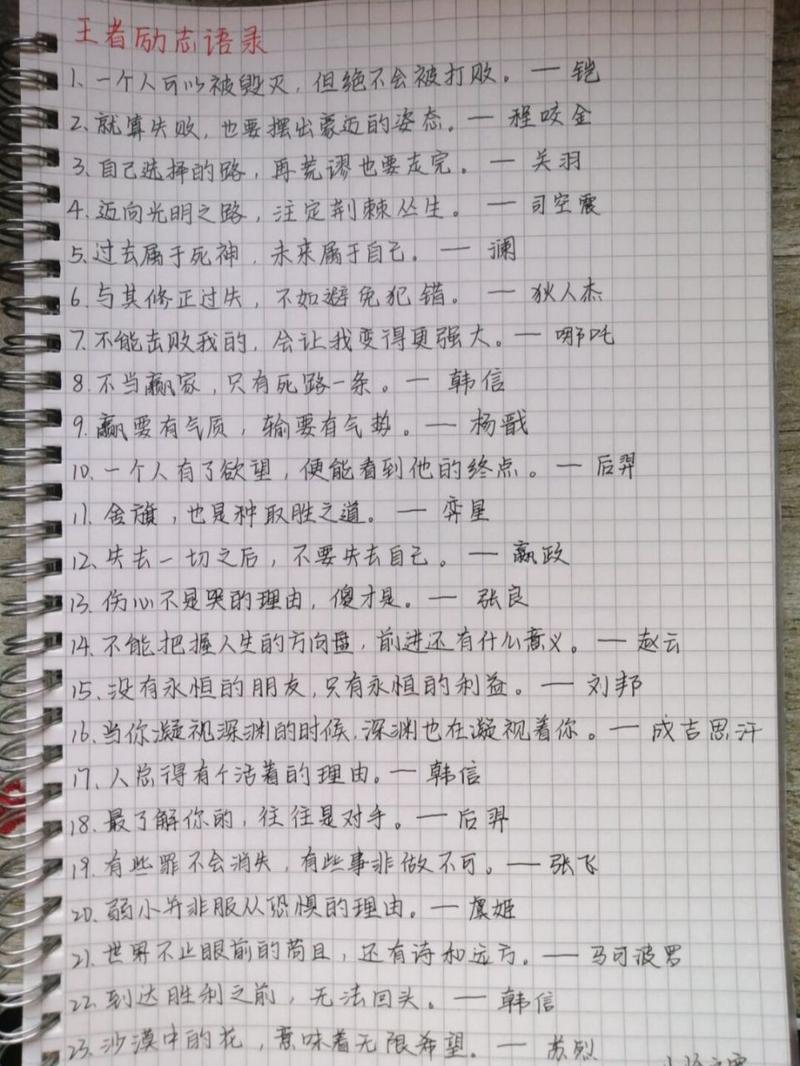 王者励志语录
1、一个人可以被毁灭，但绝不会被打败。— 铠
2、就算失败，也要摆出豪迈的姿态。— 程咬金
3、自己选择的路，再荒谬也要走完。— 关羽
4、迈向光明之路，注定荆棘丛生。— 司空震
5、过去属于死神，未来属于自己。— 澜
6、与其修正过失，不如避免犯错。— 狄人杰
7、不能击败我的，会让我变得更强大。— 哪吒
8、不当赢家，只有死路一条。— 韩信
9、赢要有气质，输要有气势。— 杨戬
10、一个人有了欲望，便能看到他的终点。— 后羿
11、舍旗，也是种取胜之道。— 弈星
12、失去一切之后，不要失去自己。— 嬴政
13、伤心不是哭的理由，傻才是。— 张良
14、不能把握人生的方向盘，前进还有什么意义。— 赵云
15、没有永恒的朋友，只有永恒的利益。— 刘邦
16、当你凝视深渊的时候，深渊也在凝视着你。— 成吉思汗
17、人总得有个活着的理由。— 韩信
18、最了解你的，往往是对手。— 后羿
19、有些罪不会消失，有些事非做不可。— 张飞
20、弱小并非服从恐惧的理由。— 虞姬
21、世界不止眼前的苟且，还有诗和远方。— 马可波罗
22、到达胜利之前，无法回头。— 韩信
23、沙漠中的花，意味着无限希望。— 苏烈